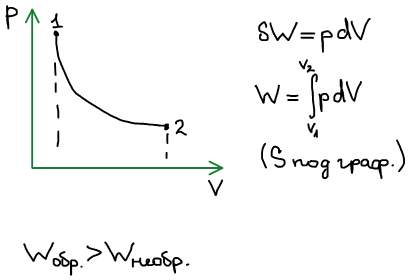 P
1
2
V
δW = pdV
W = ∫pdV
V₂
V₁
(S под граф.)
Wобр. > Wнеобр.